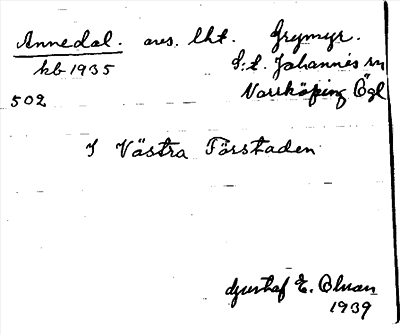 Annedal. avs. lht. Grymyr.
kb 1935 S:t. Johannes sn
502 Norrköping Ögl
I Västra Förstaden
Gustaf E. Olson
1939